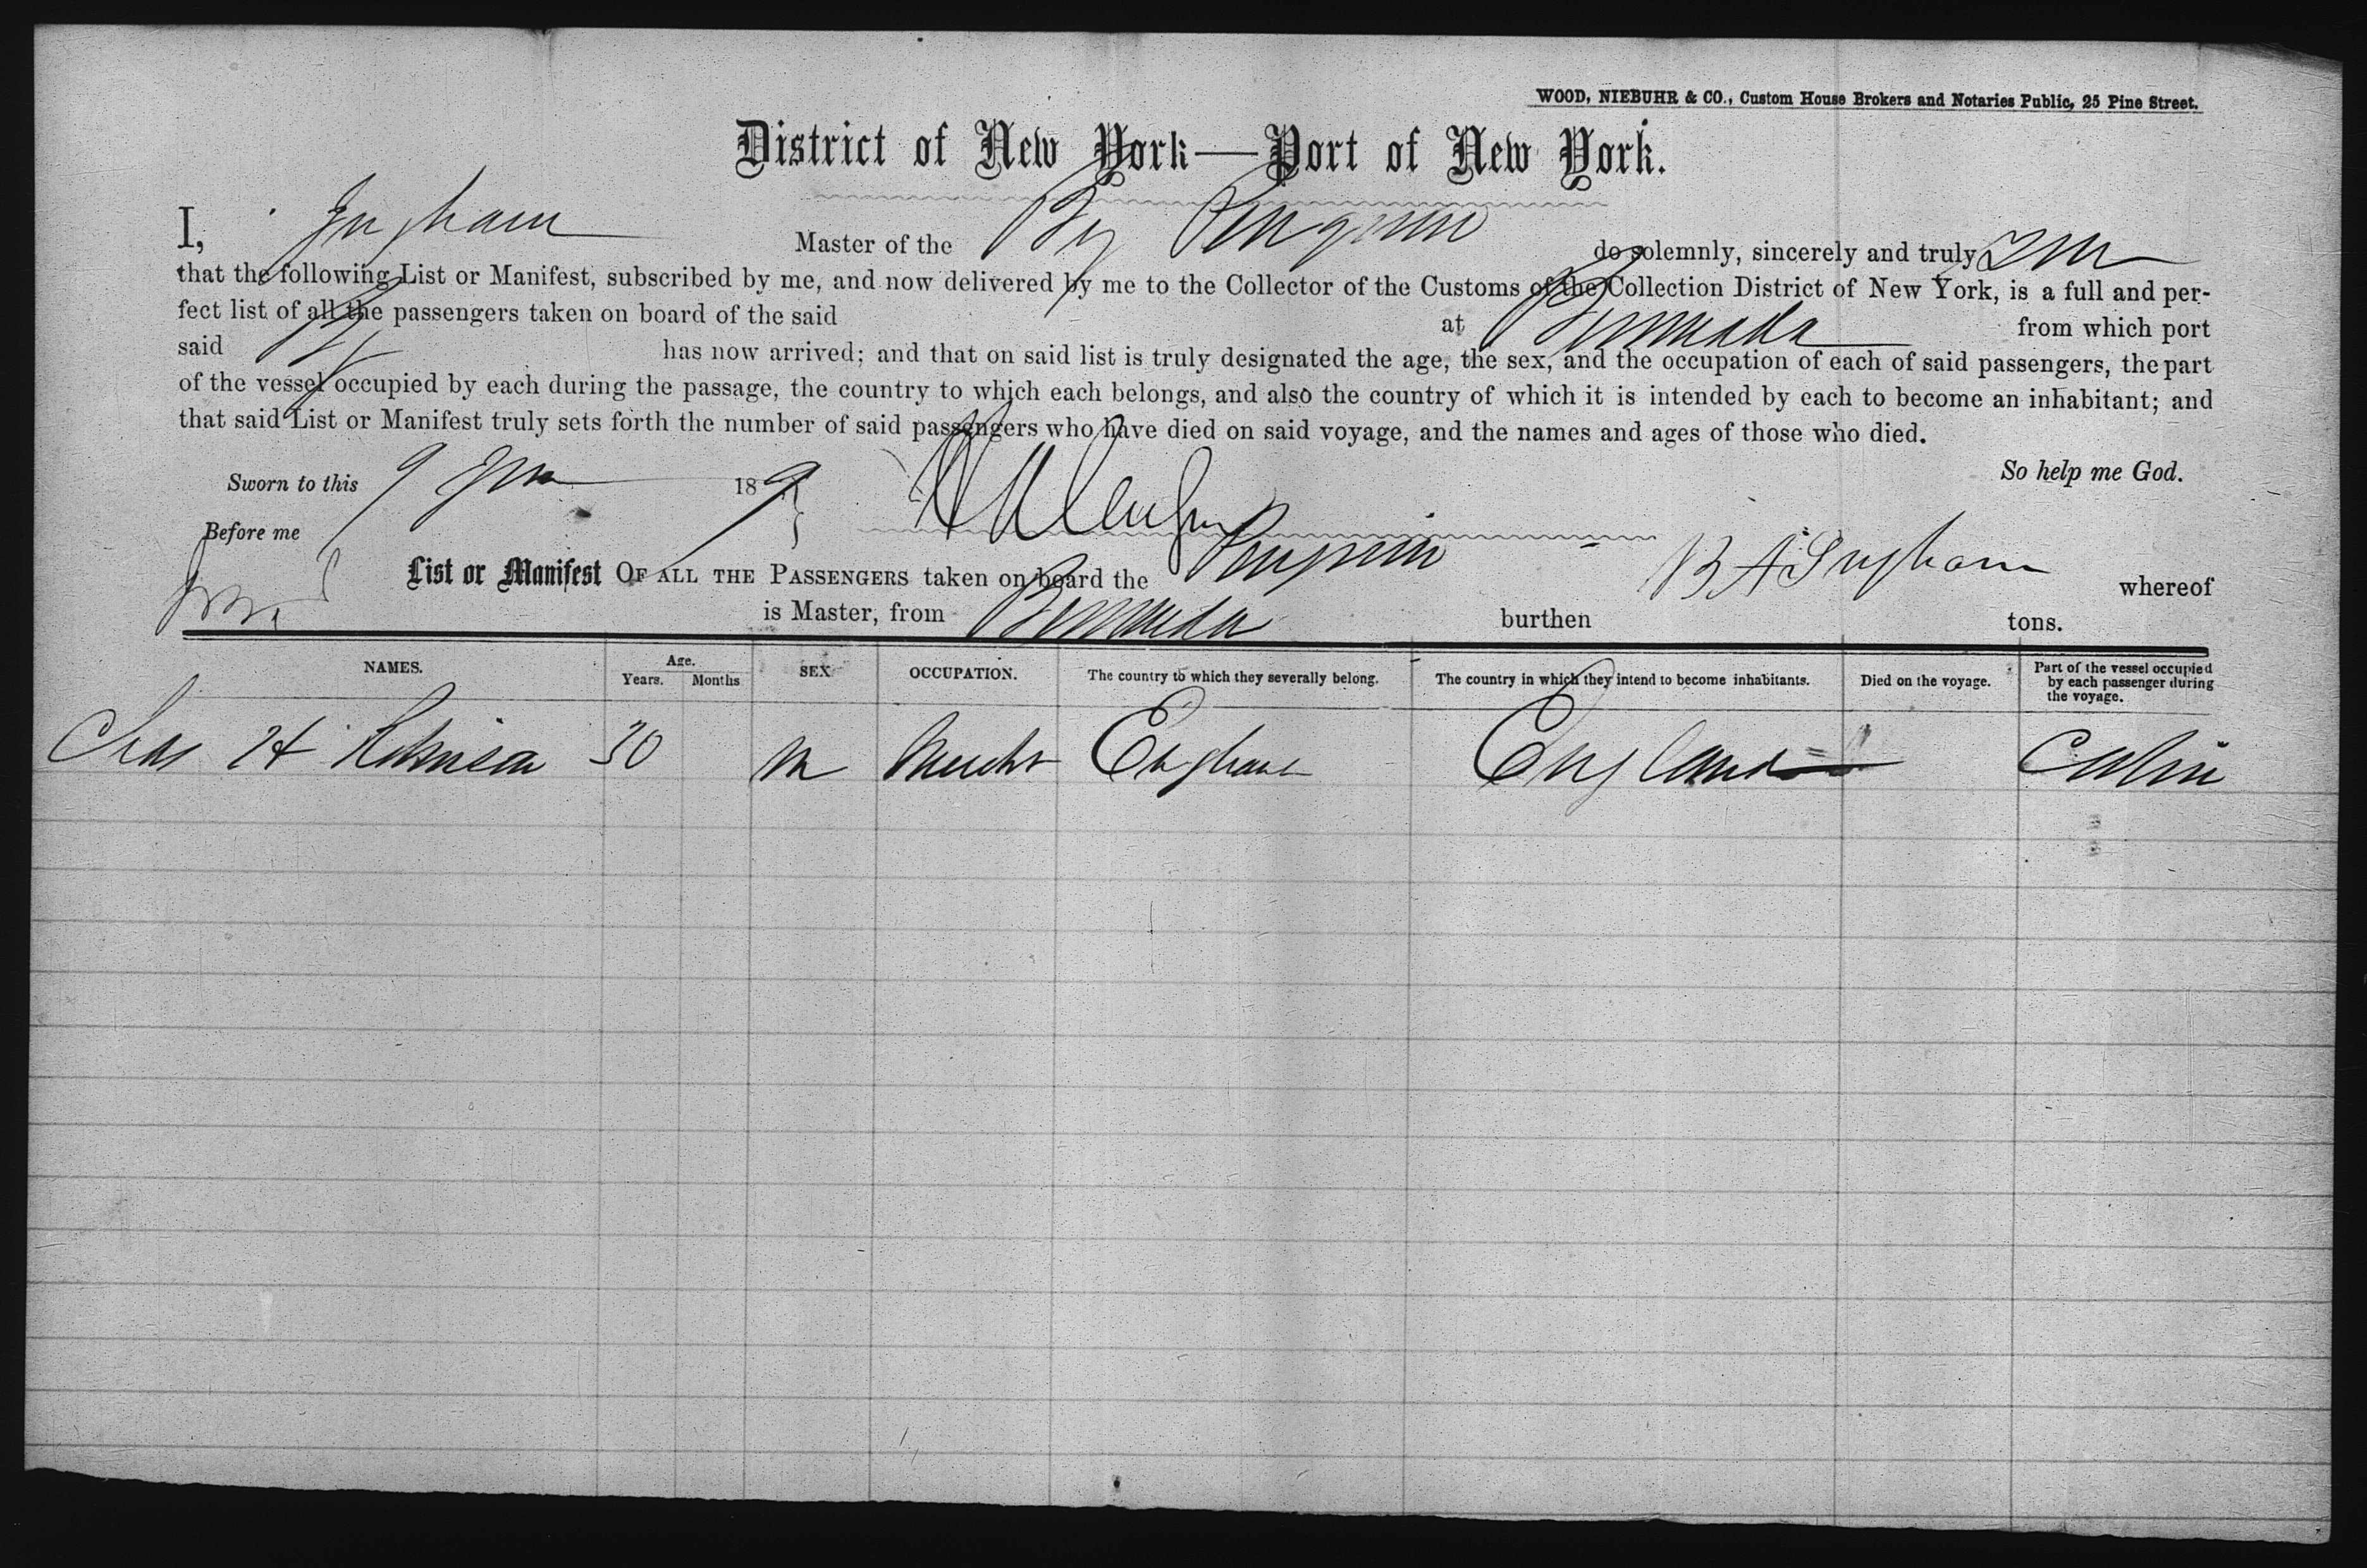 WOOD, NIEBUHR & CO., Custom House Brokers and Notaries Public, 25 Pine Street.
District of New York—Port of New York.
I, Ingham Master of the Bg Penguin do solemnly, sincerely and truly
that the following List or Manifest, subscribed by me, and now delivered by me to the Collector of the Customs of the Collection District of New York, is a full and per-
fect list of all the passengers taken on board of the said at Bermuda from which port
said Bg has now arrived; and that on said list is truly designated the age, the sex, and the occupation of each of said passengers, the part
of the vessel occupied by each during the passage, the country to which each belongs, and also the country of which it is intended by each to become an inhabitant; and
that said List or Manifest truly sets forth the number of said passengers who have died on said voyage, and the names and ages of those who died.
So help me God.
Sworn to this 9 189
Before me
List or Manifest OF ALL THE PASSENGERS taken on board the Penguin B A Ingham whereof
is Master, from Bermuda burthen tons.
NAMES. Age. Years. Months SEX OCCUPATION. The country to which they severally belong. The country in which they intend to become inhabitants. Died on the voyage. Part of the vessel occupied by each passenger during the voyage.
Chas H Robinson 30 M Mercht England England Cabin